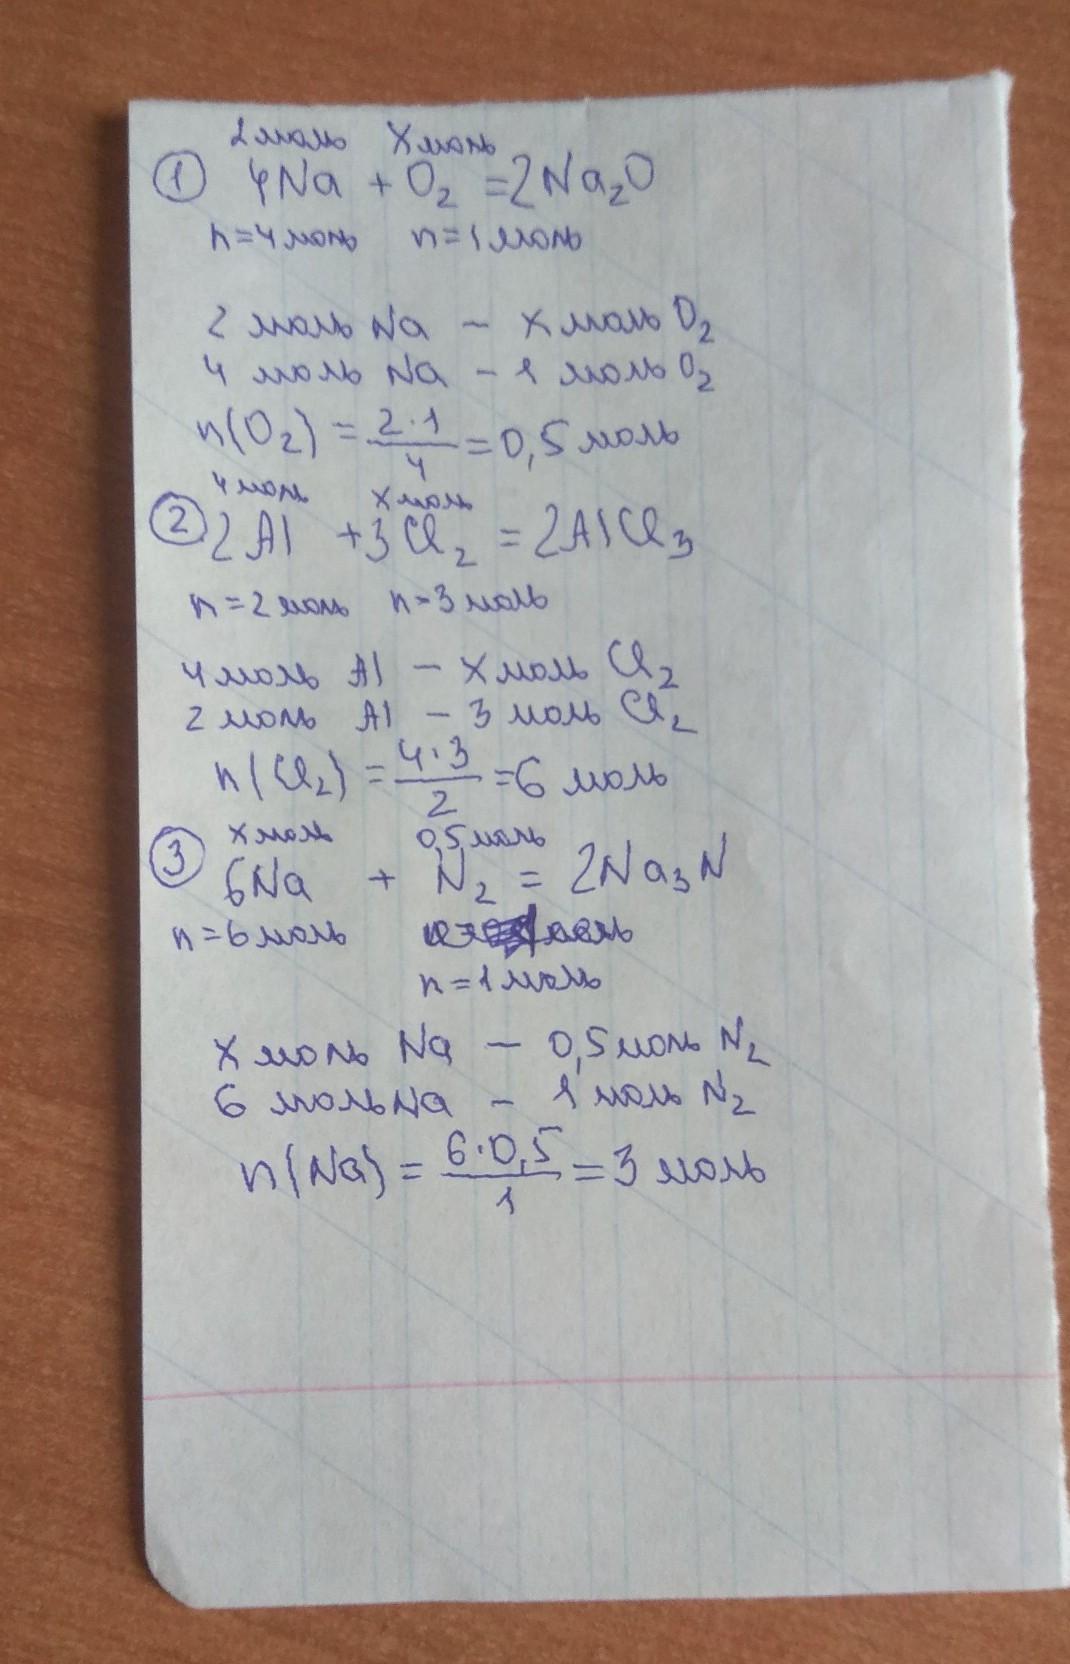 2 моль х моль
① 4Na + O₂ = 2Na₂O
n=4 моль n=1 моль
2 моль Na – х моль O₂
4 моль Na – 1 моль O₂
n(O₂) = 2·1/4 = 0,5 моль
4 моль х моль
② 2Al + 3Cl₂ = 2AlCl₃
n=2 моль n=3 моль
4 моль Al – х моль Cl₂
2 моль Al – 3 моль Cl₂
n(Cl₂) = 4·3/2 = 6 моль
х моль 0,5 моль
③ 6Na + N₂ = 2Na₃N
n=6 моль
n=1 моль
х моль Na – 0,5 моль N₂
6 моль Na – 1 моль N₂
n(Na) = 6·0,5/1 = 3 моль